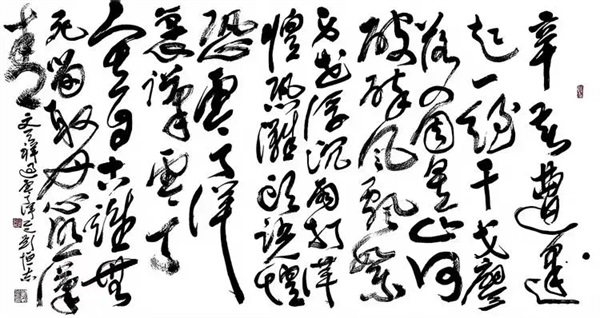 辛苦遭逢
起一經干戈寥
落四周星山河
破碎風飄絮
身世浮沉雨打萍
惶恐灘頭說惶
恐零丁洋
裏嘆零丁
人生自古誰無
死留取丹心照汗
青
文天祥過零丁洋